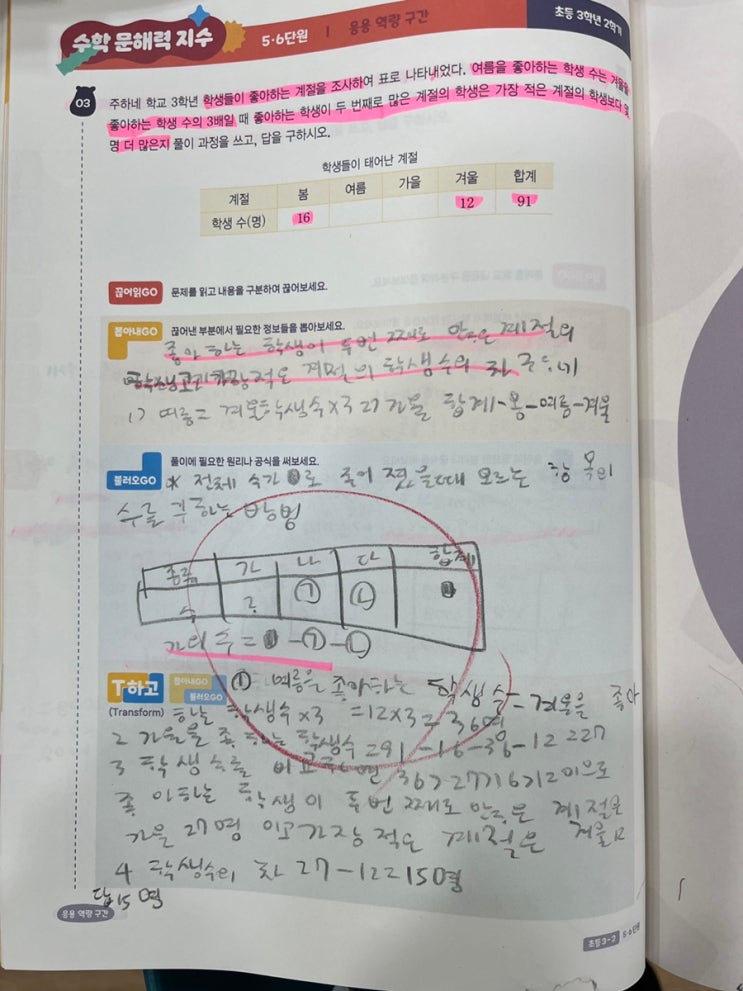 수학 문해력 지수
5·6단원 | 응용 역량 구간
초등 3학년 2학기
03
주하네 학교 3학년 학생들이 좋아하는 계절을 조사하여 표로 나타내었다. 여름을 좋아하는 학생 수는 겨울을
좋아하는 학생 수의 3배일 때 좋아하는 학생이 두 번째로 많은 계절의 학생은 가장 적은 계절의 학생보다 몇
명 더 많은지 풀이 과정을 쓰고, 답을 구하시오.
학생들이 태어난 계절
계절 봄 여름 가을 겨울 합계
학생 수(명) 16 12 91
끊어읽GO 문제를 읽고 내용을 구분하여 끊어보세요.
뽑아내GO 끊어낸 부분에서 필요한 정보들을 뽑아보세요.
좋아하는 학생이 두번째로 많은 계절의
적은 계절의 학생수의 차 구하기
1) 여름= 겨울학생수×3 2) 가을 합계-봄-여름-겨울
불러오GO 풀이에 필요한 원리나 공식을 써보세요.
* 전체 수가 로 주어 졌을때 모르는 항목의
수를 구하는 방법
종류 가 나 다 합계
수 ? ㉠ ㉡
가의 수 = -㉠-㉡
T하고 뽑아내GO 불러오GO
(Transform)
① 여름을 좋아하는 학생수= 겨울을 좋아
하는 학생수×3 =12×3=36명
2 가을을 좋 하는 학생수=91-16-36-12=27
3 학생수를 비교하면 36>27>16>12이므로
좋아하는 학생이 두번째로 많은 계절은
가을 27명 이고 가장 적은 계절은 겨울
4 학생수의 차 27-12=15명
답 15명
응용 역량 구간
초등3-2 5·6단원